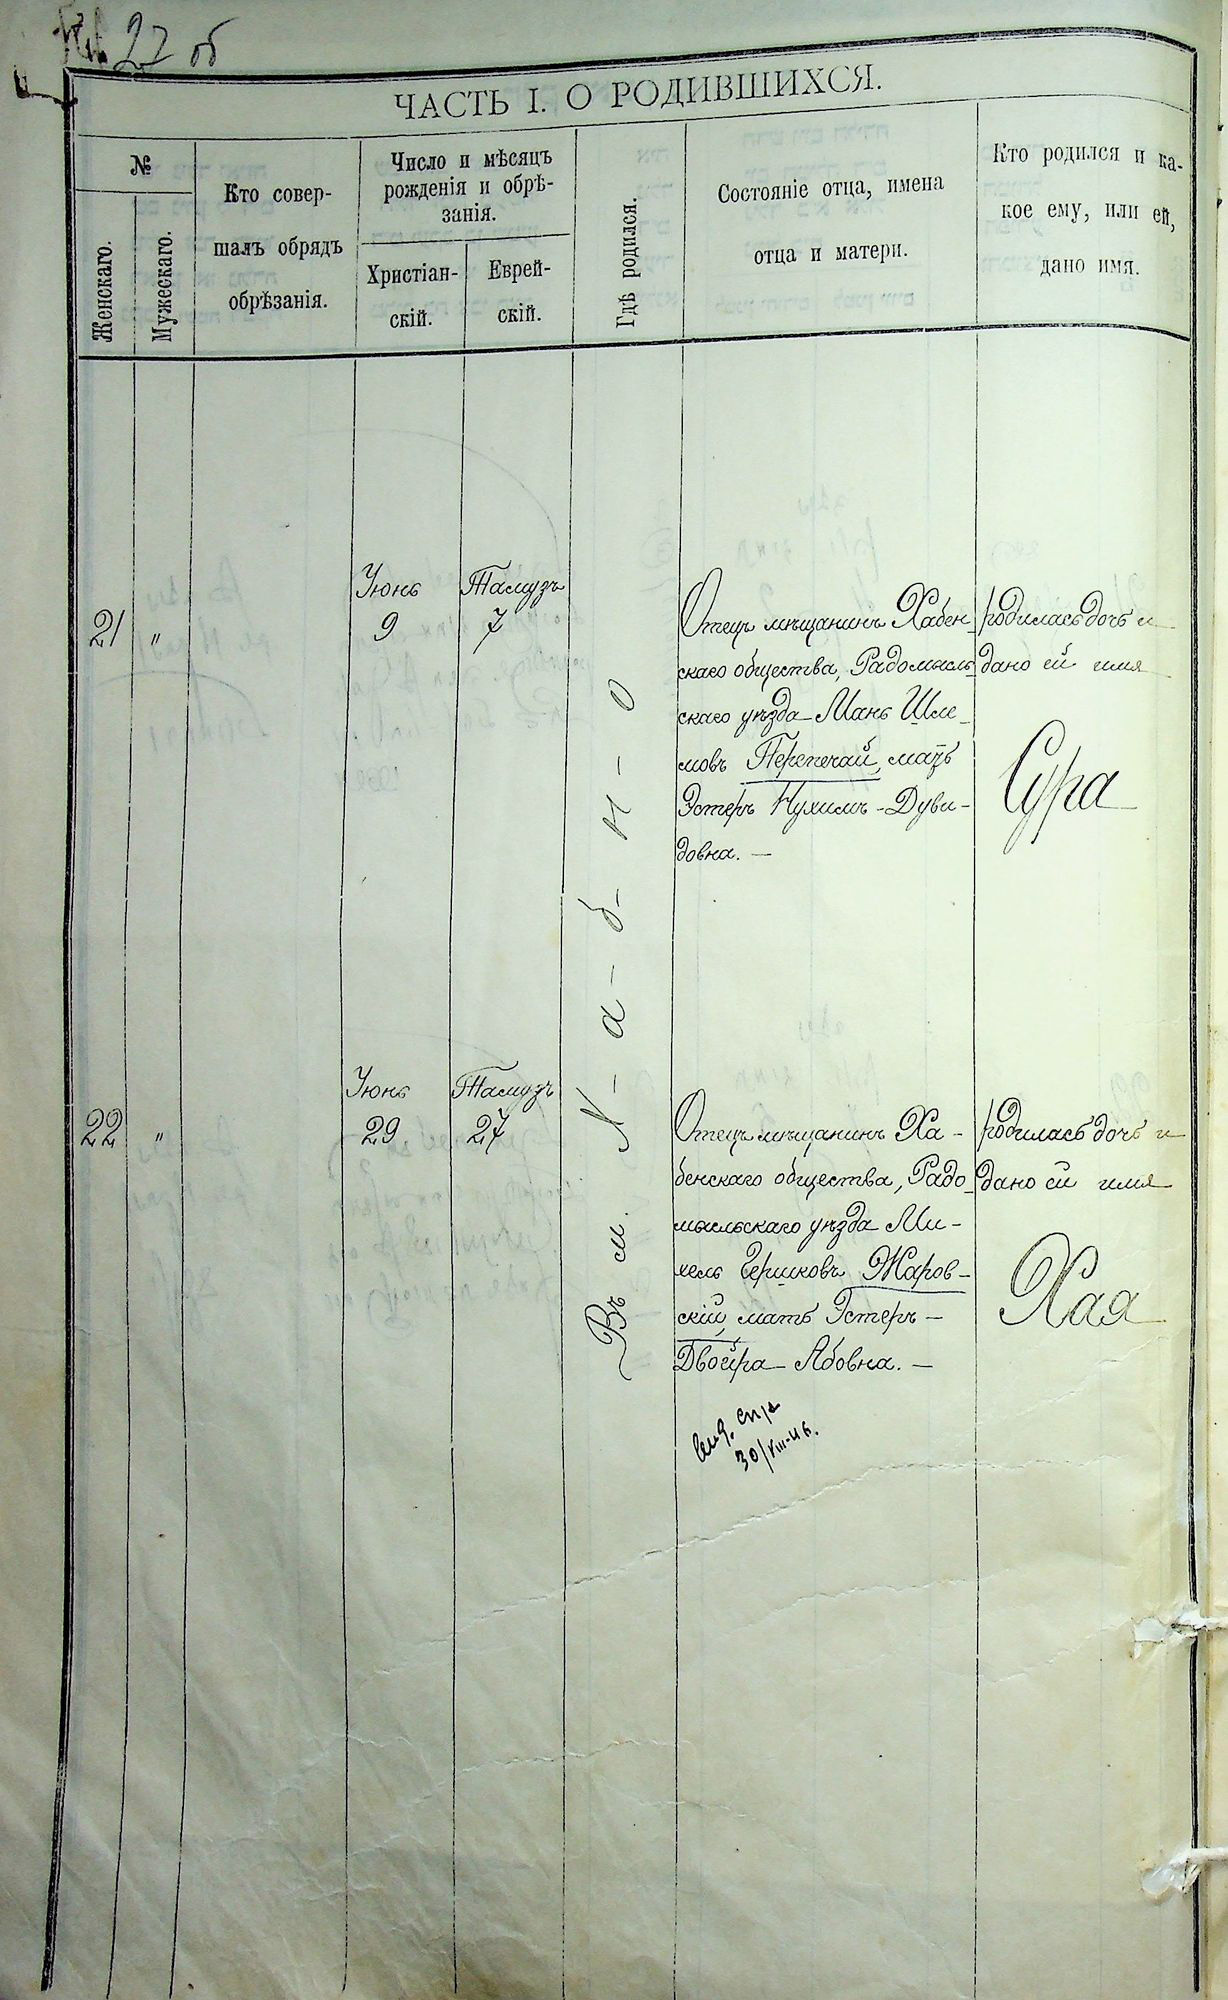 27 об
ЧАСТЬ I. О РОДИВШИХСЯ.
№
Женскаго.
Мужескаго.
Кто совер-
шалъ обрядъ
обрѣзанія.
Число и мѣсяцъ
рожденія и обрѣ-
занія.
Христіан-
скій.
Еврей-
скій.
Гдѣ родился.
Состояніе отца, имена
отца и матери.
Кто родился и ка-
кое ему, или ей,
дано имя.
Въ м. Х-а-б-н-о
21 "
Іюнь
9
Тамузъ
7
Отецъ мѣщанинъ Хабен-
скаго общества, Радомысль-
скаго уѣзда Мань Шле-
мовъ Перепечай, мать
Эстеръ Нухимъ-Дуви-
довна. —
родилась дочь и
дано ей имя
Сура
22 "
Іюнь
29
Тамузъ
27
Отецъ мѣщанинъ Ха-
бенскаго общества, Радо-
мысльскаго уѣзда Ми-
хель Гершковъ Жаров-
скій, мать Эстеръ-
Двойра Абовна. —
родилась дочь и
дано ей имя
Хая
30/VIII-46.